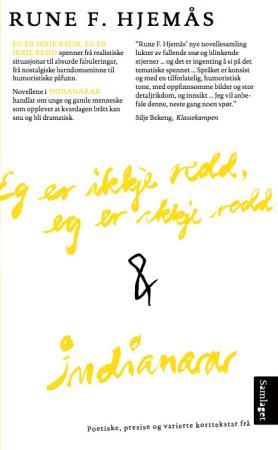 RUNE F. HJEMÅS
EG ER IKKJE REDD, EG ER
IKKJE REDD spenner frå realistiske
situasjonar til absurde fabuleringar,
frå nostalgiske barndomsminne til
humoristiske påfunn.
Novellene i INDIANARAR
handlar om unge og gamle menneske
som opplever at kvardagen brått kan
snu og bli dramatisk.
"Rune F. Hjemås' nye novellesamling
lukter av fallende snø og blinkende
stjerner ... og det er ingenting å si på det
tematiske spennet ... Språket er konsist
og med en tilforlatelig, humoristisk
tone, med oppfinnsomme bilder og stor
detaljrikdom, og innsikt ... Jeg vil anbe-
fale denne, neste gang noen spør."
Silje Bekeng, Klassekampen
Eg er ikkje redd,
eg er ikkje redd
&
indianarar
Samlaget
Poetiske, presise og varierte korttekstar frå